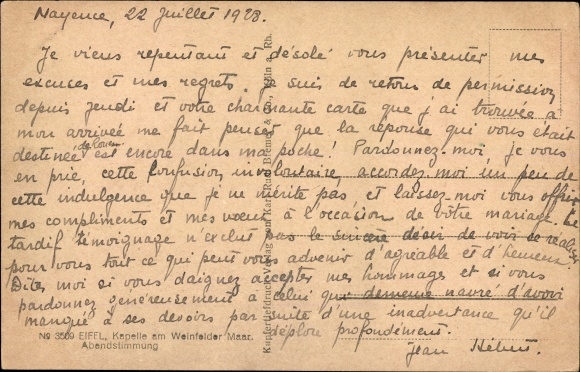 Mayence, 22 Juillet 1928.
Je viens repentant et désolé vous présenter mes
excuses et mes regrets. Je suis de retour de permission
depuis jeudi et votre charmante carte que j'ai trouvée à
mon arrivée me fait penser que la réponse qui vous était
destinée est encore dans ma poche! Pardonnez-moi, je vous
en prie, cette confusion involontaire, accordez-moi un peu de
cette indulgence que je ne mérite pas et laissez-moi vous offrir
mes compliments et mes vœux à l'occasion de vôtre mariage. Le
tardif témoignage n'exclut pas le sincère désir de voir se réaliser
pour vous tout ce qui peut vous advenir d'agréable et d'heureux.
Dites moi si vous daignez accepter mes hommages et si vous
pardonnez généreusement à celui que demeure navré d'avoir
manqué à ses devoirs par suite d'une inadvertance qu'il
déplore profondément.
Jean
No 3509 EIFEL, Kapelle am Weinfelder Maar.
Abendstimmung
Kupfertiefdruck-Verlag von Karl Rud. Bremer & Co., Köln a. Rh.